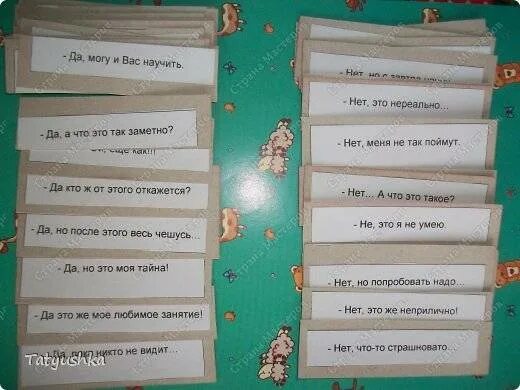 - Да, могу и Вас научить.
- Да, а что это так заметно?
еще как!!!
- Да кто ж от этого откажется?
- Да, но после этого весь чешусь...
- Да, но это моя тайна!
- Да это же мое любимое занятие!
- Да, пока никто не видит...
- Нет, но с завтра
- Нет, это нереально...
- Нет, меня не так поймут.
- Нет... А что это такое?
- Не, это я не умею.
- Нет, но попробовать надо...
- Нет, это же неприлично!
- Нет, что-то страшновато...
Tatyushka
Страна Мастеров